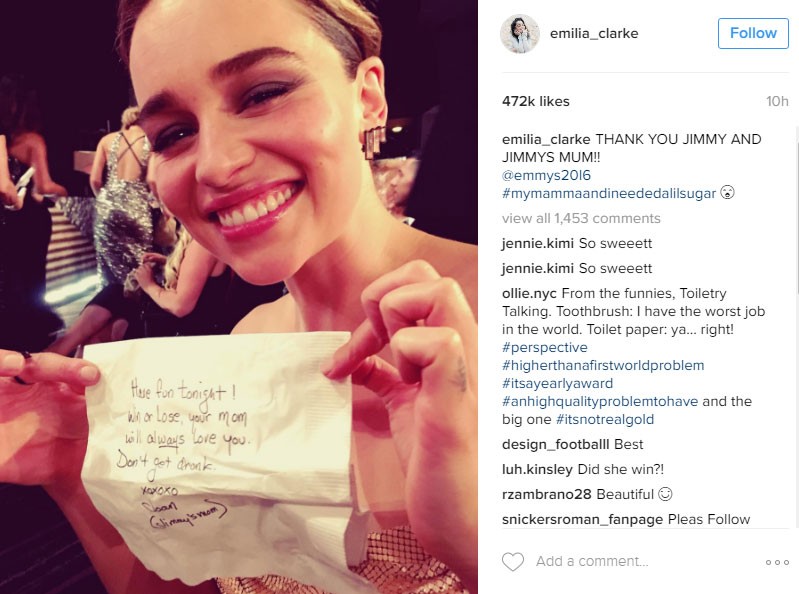 Have fun tonight!
Win or Lose, your mom
will always love you.
Don't get drunk.
xoxoxo
Joan
(Jimmy's mom)
emilia_clarke
Follow
472k likes
10h
emilia_clarke THANK YOU JIMMY AND
JIMMYS MUM!!
@emmys20l6
#mymammaandineededalilsugar 😮
view all 1,453 comments
jennie.kimi So sweeett
jennie.kimi So sweeett
ollie.nyc From the funnies, Toiletry
Talking. Toothbrush: I have the worst job
in the world. Toilet paper: ya... right!
#perspective
#higherthanafirstworldproblem
#itsayearlyaward
#anhighqualityproblemtohave and the
big one #itsnotrealgold
design_footballl Best
luh.kinsley Did she win?!
rzambrano28 Beautiful ☺
snickersroman_fanpage Pleas Follow
Add a comment...